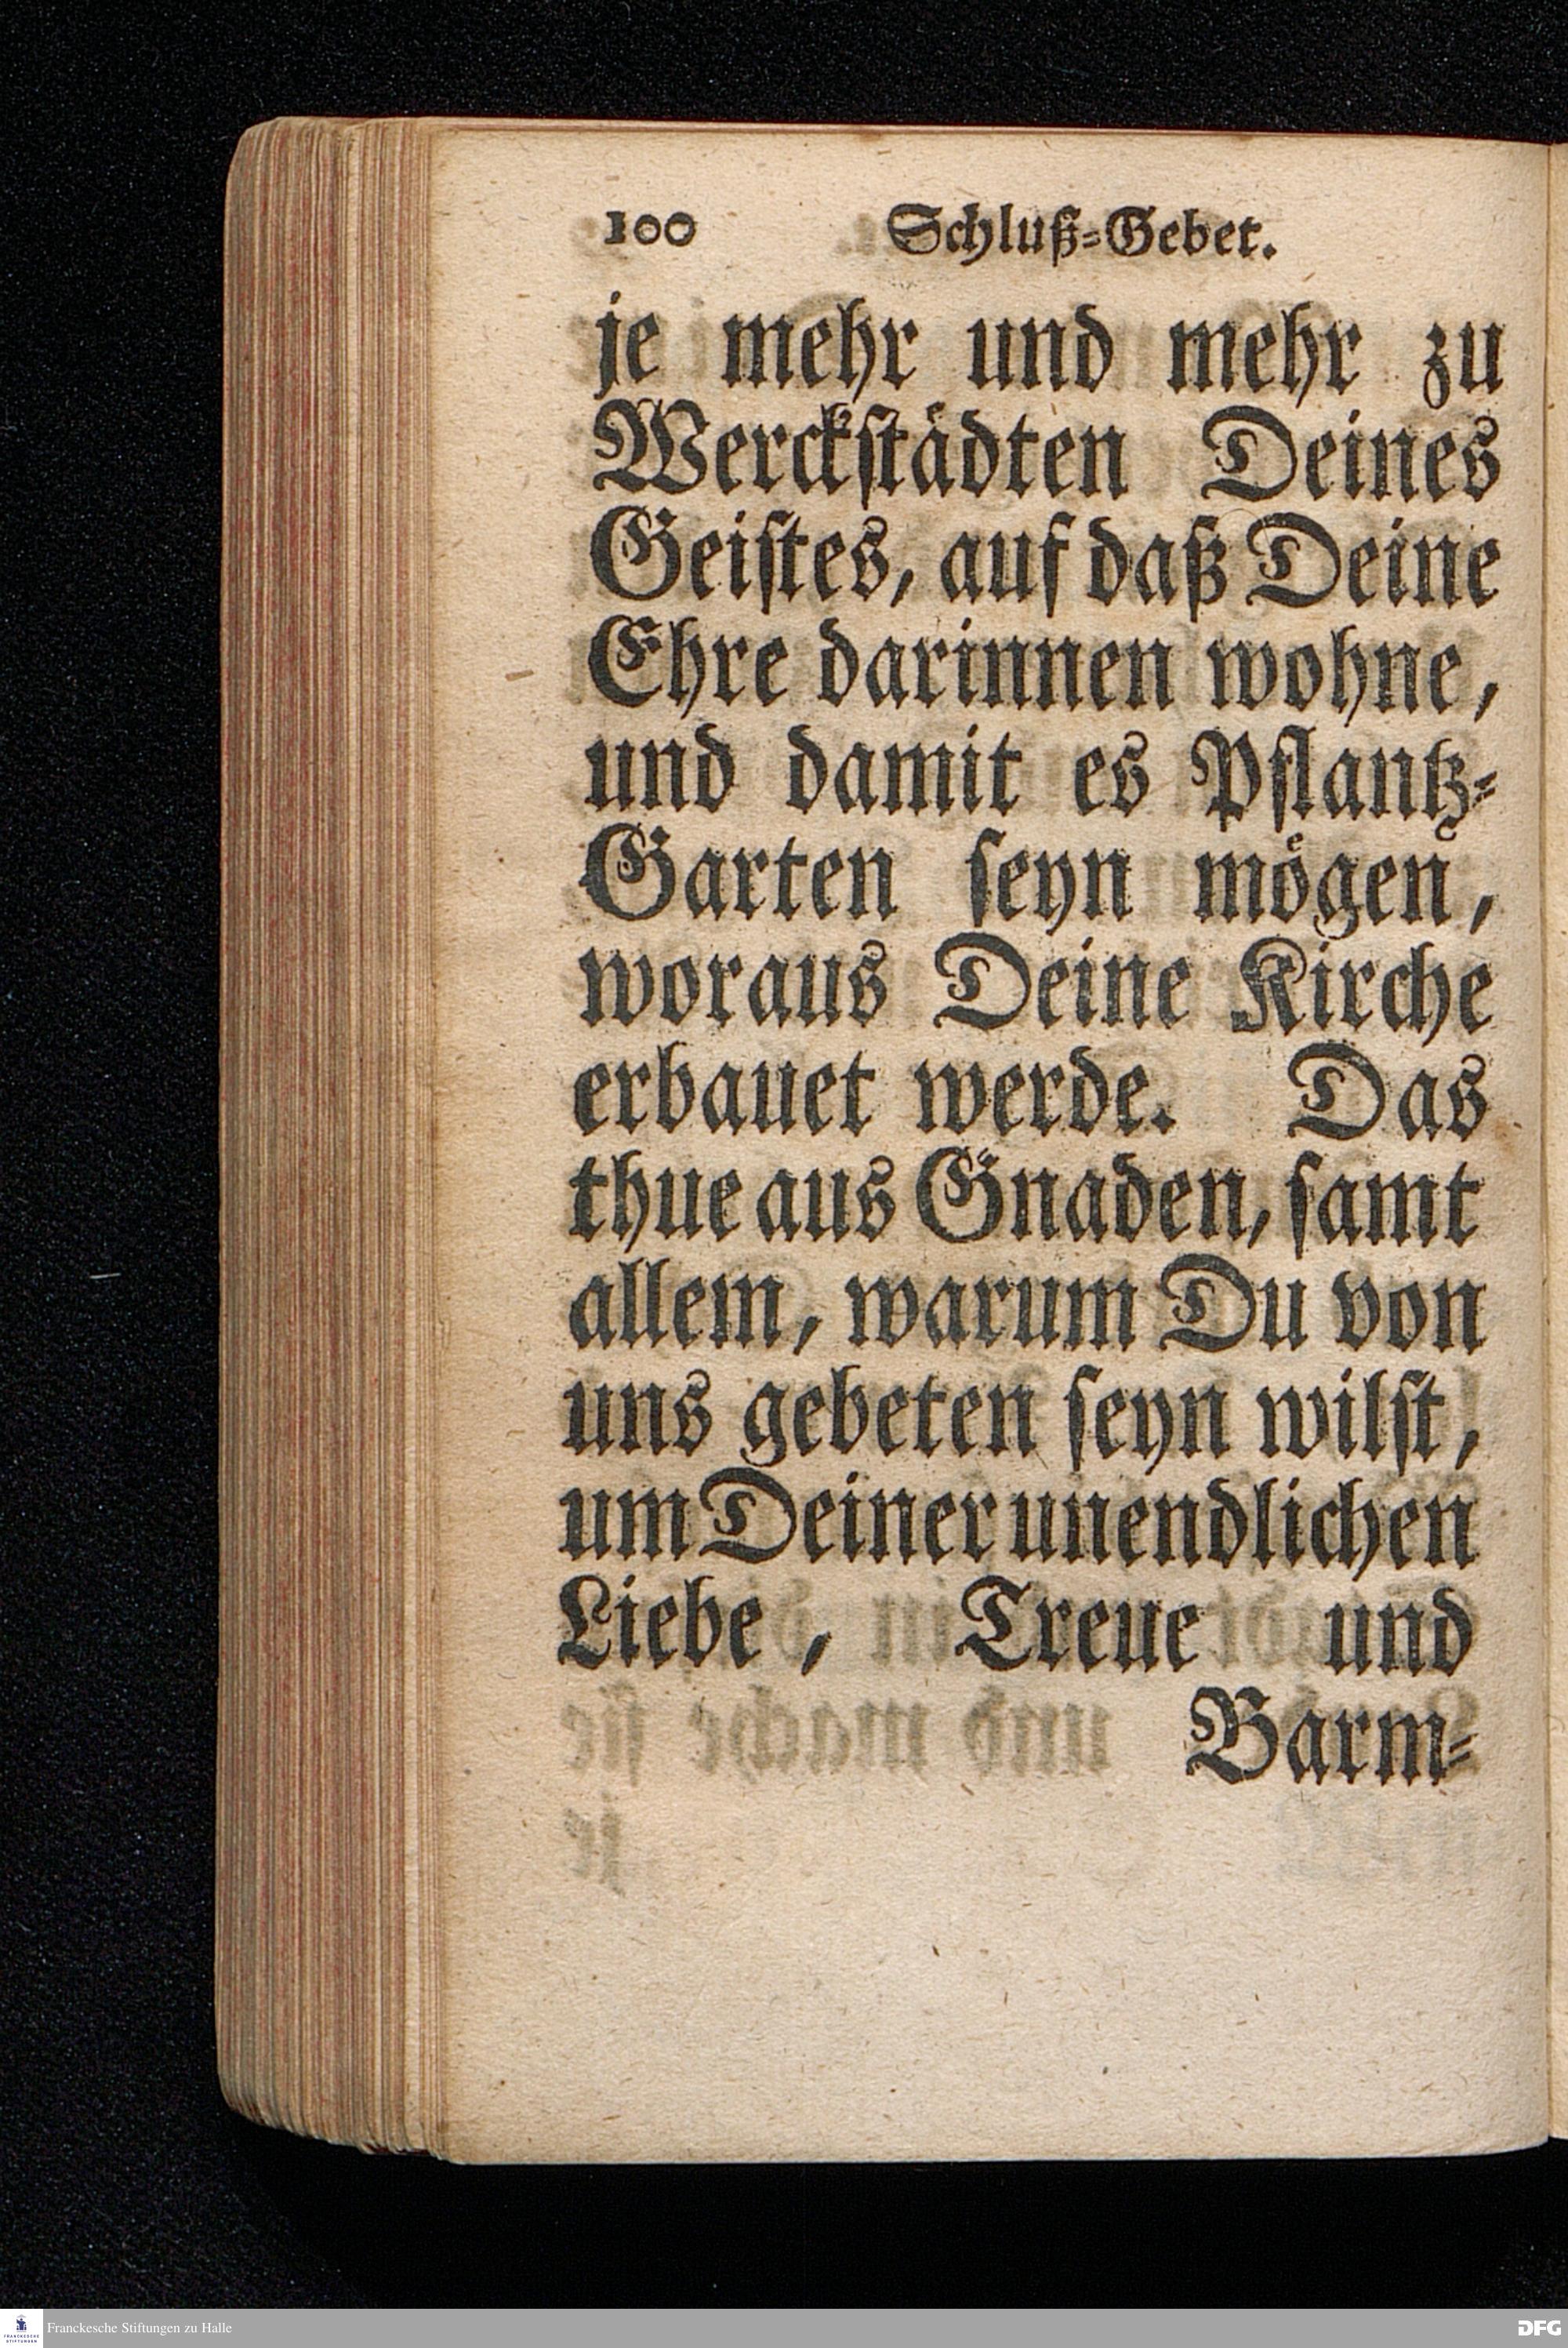 100 Schluß-Gebet.
je mehr und mehr zu
Werckstädten Deines
Geistes, auf daß Deine
Ehre darinnen wohne,
und damit es Pflantz-
Garten seyn mögen,
woraus Deine Kirche
erbauet werde. Das
thue aus Gnaden, samt
allem, warum Du von
uns gebeten seyn wilst,
um Deiner unendlichen
Liebe, Treue und
Barm-
FRANCKESCHE
STIFTUNGEN
Franckesche Stiftungen zu Halle
DFG